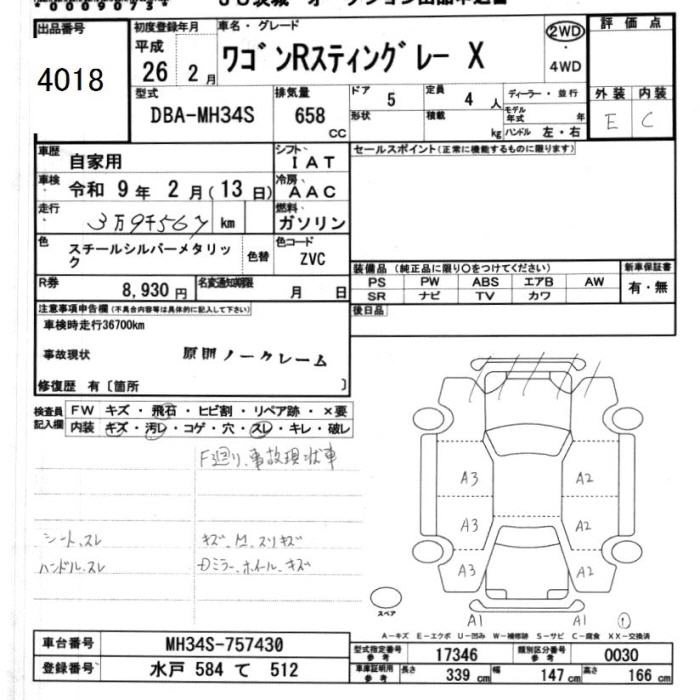 出品番号
4018
初度登録年月
平成
26 2月
車名・グレード
ワゴンRスティングレー X
2WD
・
4WD
評価点
外装 内装
E C
型式
DBA-MH34S
排気量
658
cc
ドア 5
形状
定員 4人
積載 kg
ディーラー・並行
モデル年式 年
ハンドル 左・右
車歴 自家用
シフト IAT
セールスポイント(正常に機能するものに限ります)
車検 令和 9年 2月(13日)
冷房 AAC
走行 3万9千567 km
燃料 ガソリン
色 スチールシルバーメタリック
色替
色コード ZVC
R券 8,930円
名変通知期限 月 日
装備品(純正品に限り○をつけてください)
PS PW ABS エアB AW
SR ナビ TV カワ
新車保証書
有・無
後日品
注意事項申告欄(不具合内容等は具体的に記入して下さい)
車検時走行36700km
事故現状 原則ノークレーム
修復歴 有〔箇所 〕
検査員記入欄
FW キズ・飛石・ヒビ割・リペア跡・×要
内装 キズ・汚レ・コゲ・穴・スレ・キレ・破レ
F廻り、事故現状車
シート、スレ
キズ、凹、スリキズ
ハンドル、スレ
Dミラー、ホイール、キズ
A3 A2
A3 A2
A3 A2
A1 A1
①
スペア
A-キズ E-エクボ U-凹み W-補修跡 S-サビ C-腐食 XX-交換済
車台番号 MH34S-757430
登録番号 水戸 584 て 512
型式指定番号 参考 17346
類別区分番号 参考 0030
車庫証明用 参考 長さ 339cm 幅 147cm 高さ 166cm